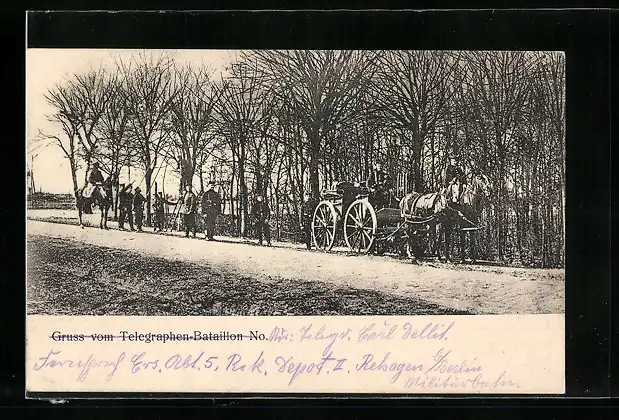 Gruss vom Telegraphen-Bataillon No. Abs: Telegr. Carl Dellit
Fernsprech Ers. Abt. 5, Rek. Depot. II Rehagen/Berlin
Militärbahn.